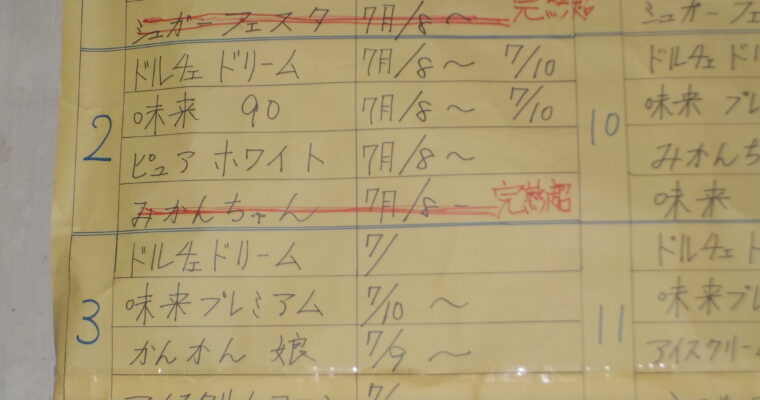 シュガーフェスタ 7月/8～ 完熟超 シュガーフェ
2
ドルチェドリーム 7月/8～ 7/10 ドルチェドリ
味来 90 7月/8～ 7/10 10 味来プレ
ピュアホワイト 7月/8～ みかんち
みかんちゃん 7月/8～ 完熟超 味来
3
ドルチェドリーム 7/ ドルチェド
味来プレミアム 7/10～ 11 味来プレ
かんかん娘 7/9～ アイスクリー
7/